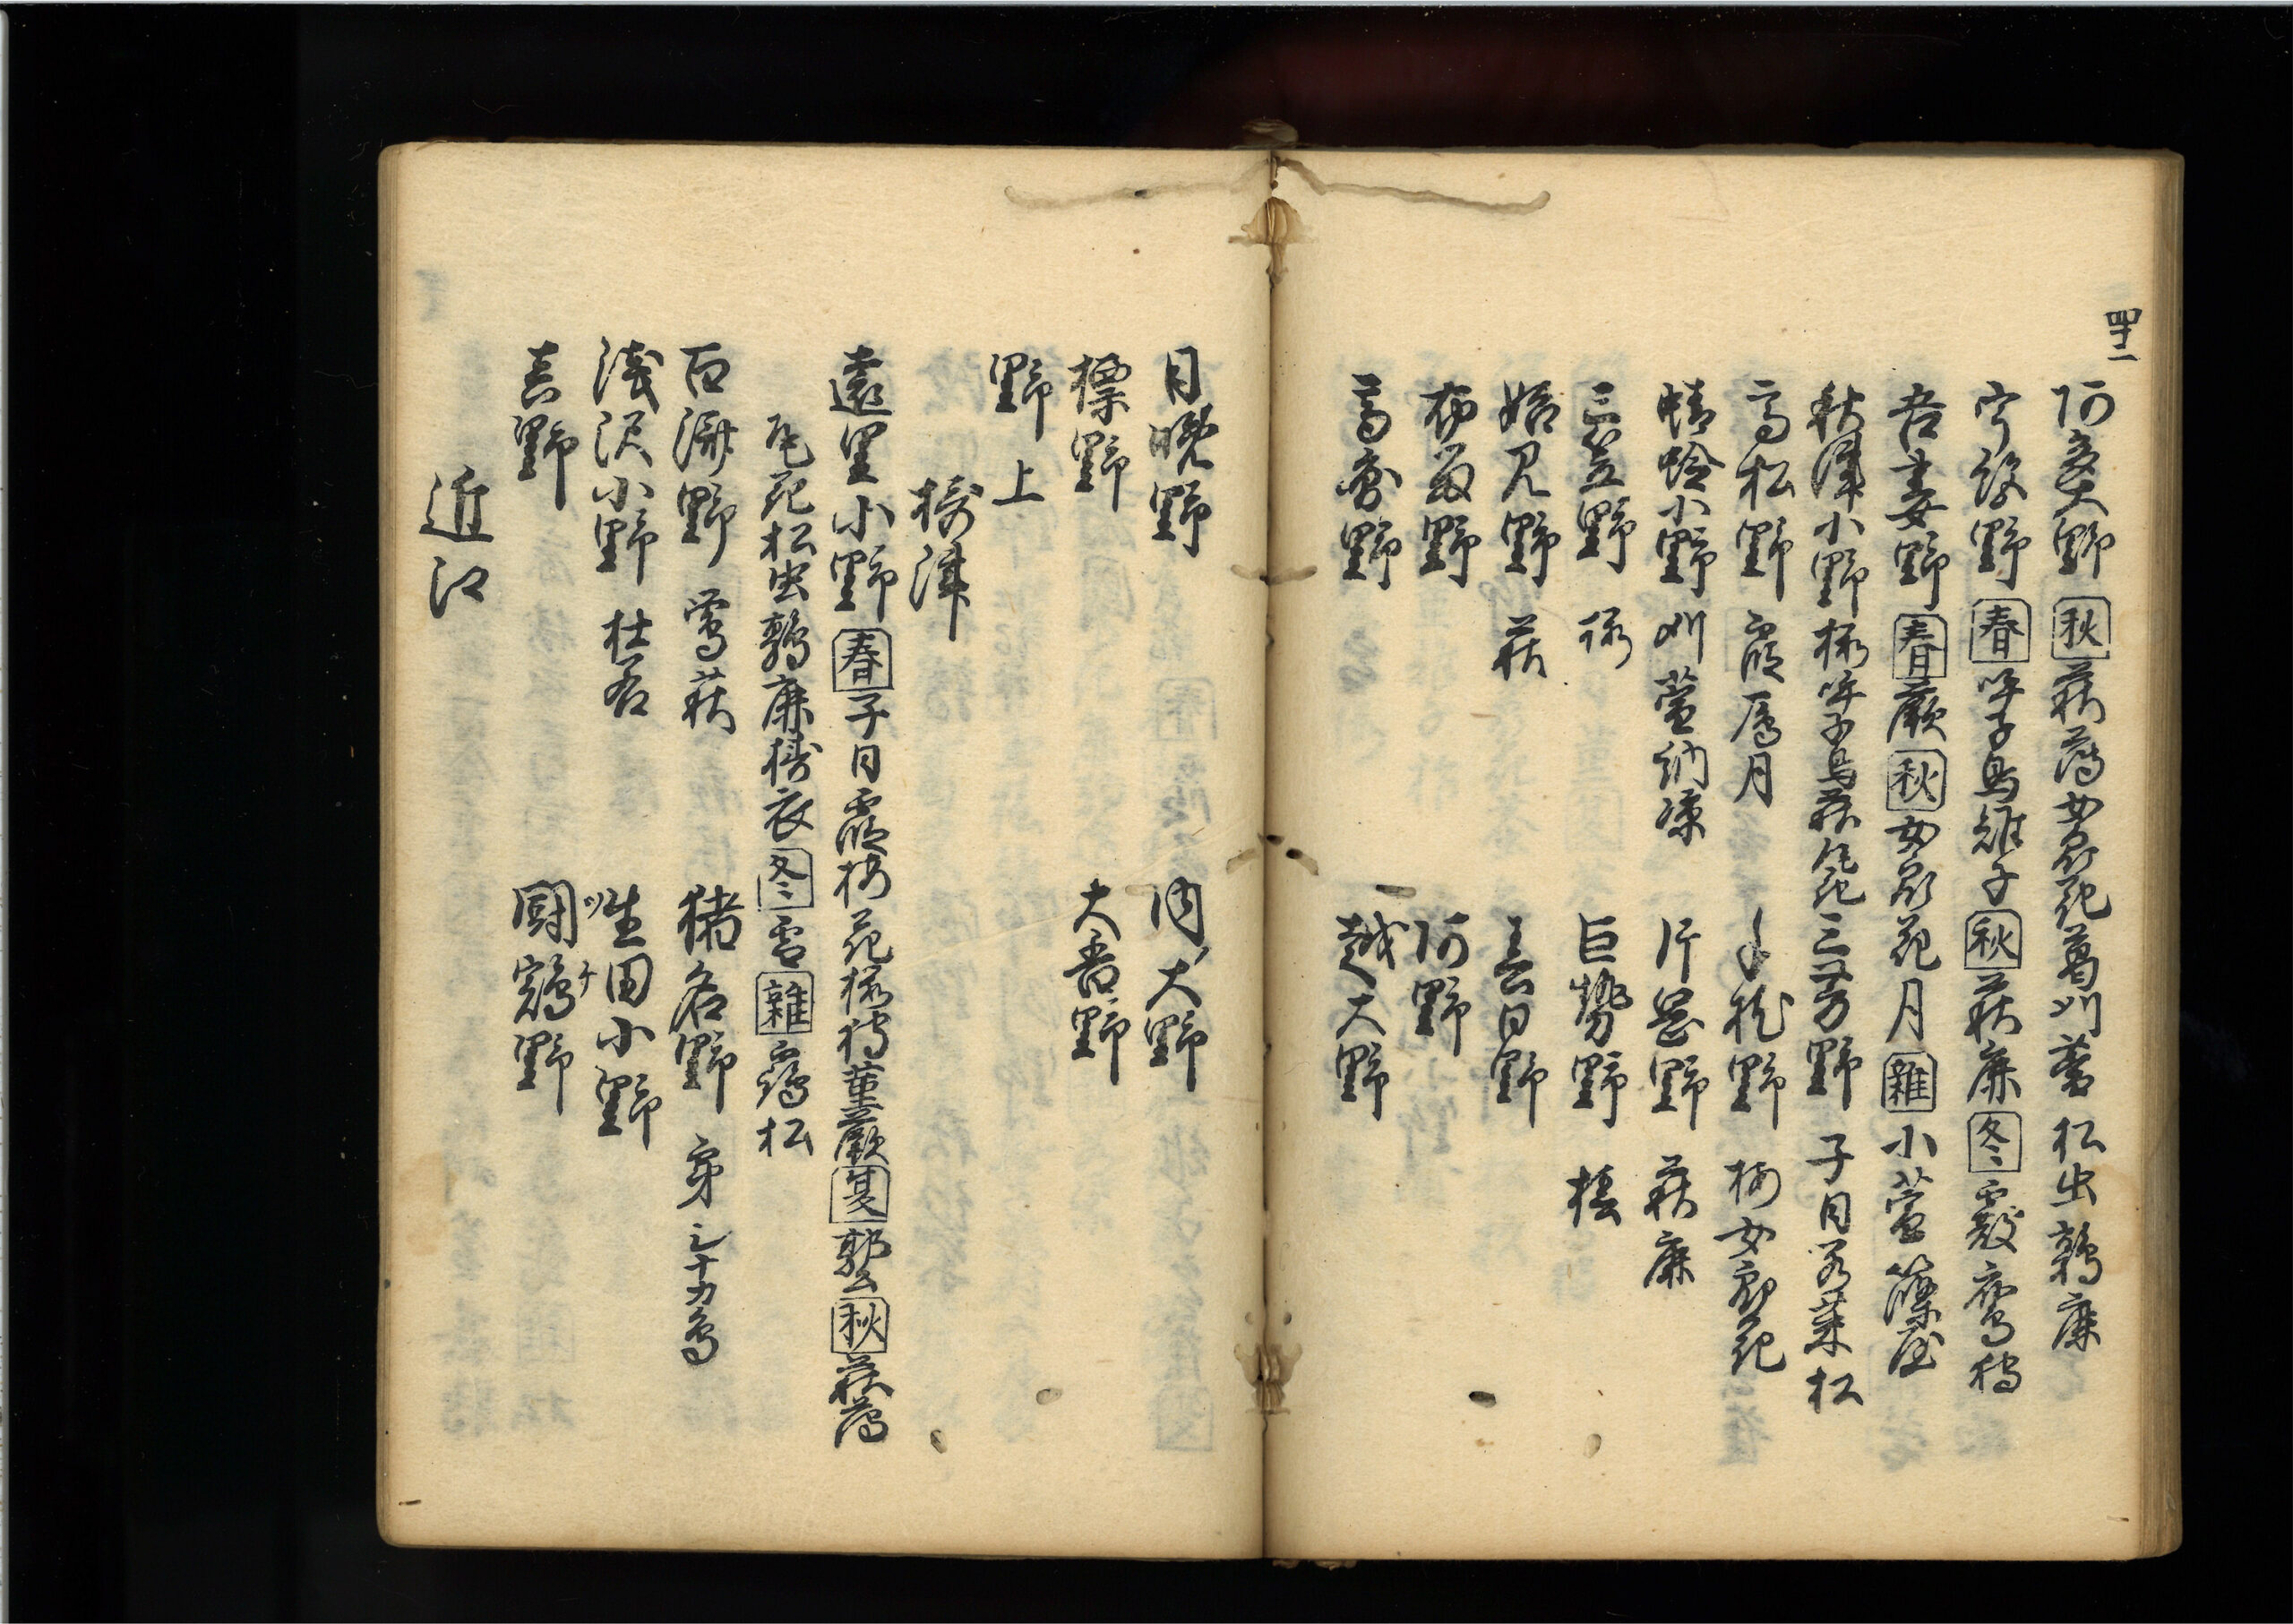 四十二
阿太野 秋 萩薄女郎花葛刈萱松虫鶉鹿
宇治野 春 呼子鳥雉子 秋 萩鹿 冬 霰
吾妻野 春 蕨 秋 女郎花月 雑 小萱篠
秋津小野 桜呼子鳥萩尾花 三芳野 子日若菜松
高松野 霞雁月 手枕野 梅女郎花
蜻蛉小野 刈萱納涼 片岡野 萩鹿
三笠野 桜 巨勢野 椿
始見野 萩 春日野
布留野 阿野
高円野 越大野
日晩野 内大野
標野 大吾野
野上
摂津
遠里小野 春 子日霞梅花桜 菫蕨 夏 郭公 秋 萩薄
尾花松虫鶉鹿擣衣 冬 雪 雑 鶴松
百済野 鶯萩 猪名野
浅沢小野 杜若 生田小野
真野 闘鶏野 ツケ
近江